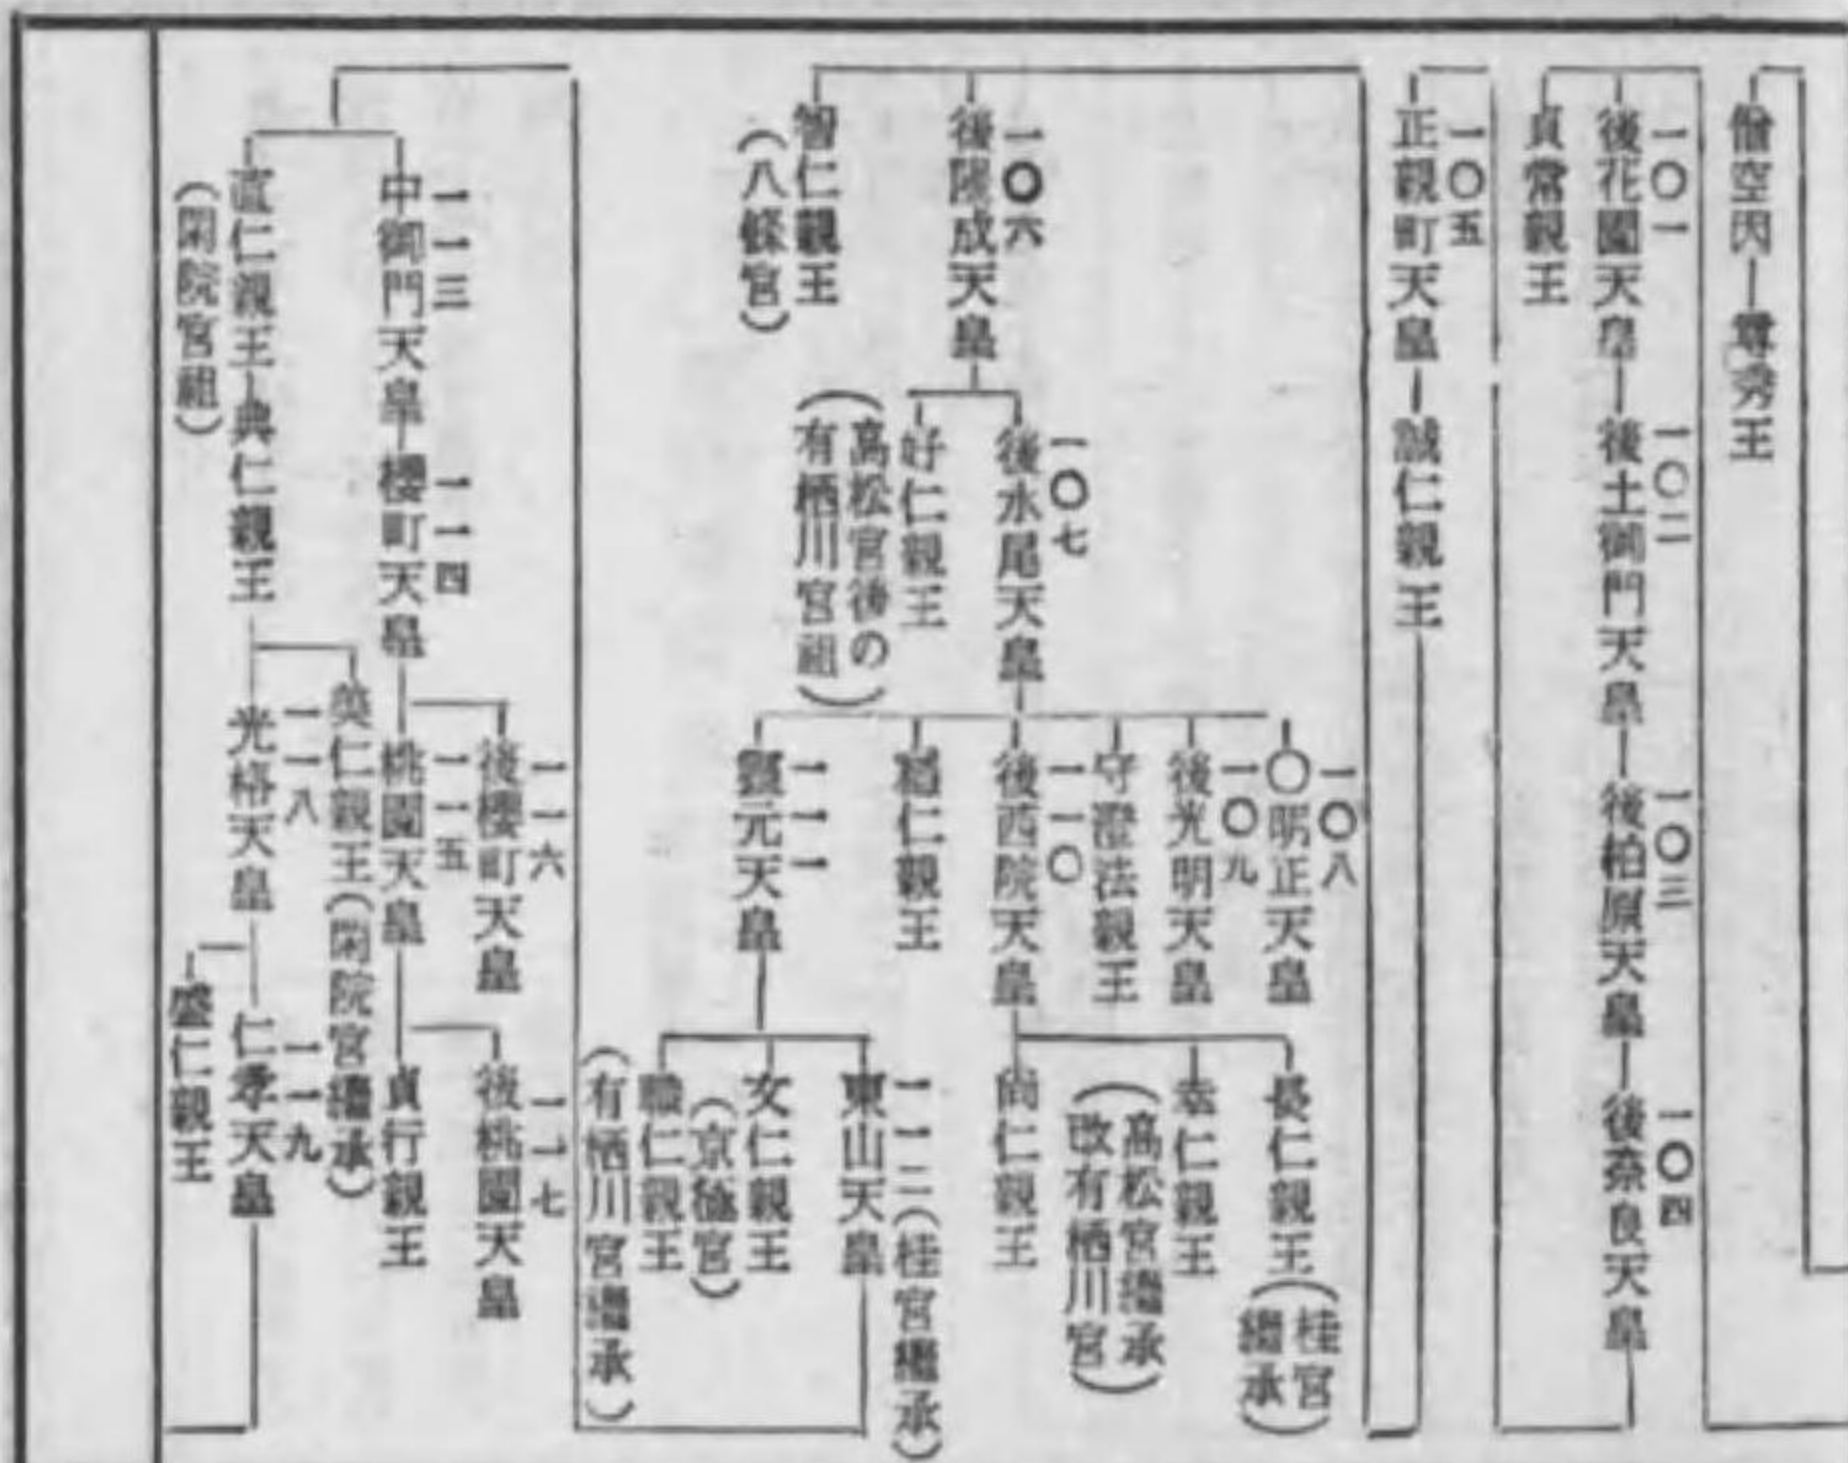 僧空因―尊秀王
一〇一
後花園天皇―
一〇二
後土御門天皇―
一〇三
後柏原天皇―
一〇四
後奈良天皇
貞常親王
一〇五
正親町天皇―誠仁親王
一〇六
後陽成天皇
智仁親王
(八條宮)
一〇七
後水尾天皇
好仁親王
(高松宮後の
有栖川宮祖)
一〇八
〇明正天皇
一〇九
後光明天皇
守澄法親王
一一〇
後西院天皇
穏仁親王
一一一
靈元天皇
長仁親王(桂宮
繼承)
幸仁親王
(高松宮繼承
改有栖川宮)
尚仁親王
一一二(桂宮繼承)
東山天皇
女仁親王
(京極宮)
職仁親王
(有栖川宮繼承)
一一三
中御門天皇―
一一四
櫻町天皇
直仁親王―典仁親王
(閑院宮祖)
一一六
後櫻町天皇
一一五
桃園天皇
一一七
後桃園天皇
貞行親王
美仁親王(閑院宮繼承)
一一八
光格天皇
一一九
仁孝天皇
盛仁親王